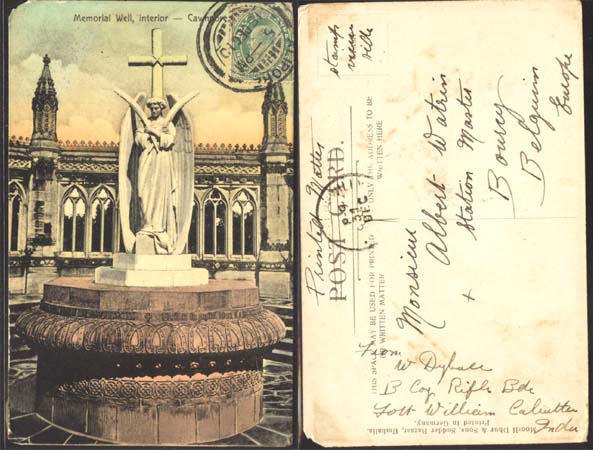 Memorial Well, interior — Cawnpore.
stamps
view
side
Printed Matter
POST CARD.
THIS SPACE MAY BE USED FOR PRINTED
OR WRITTEN MATTER
ONLY THE ADDRESS TO BE
WRITTEN HERE
DEC
Monsieur
Albert Watrin
Station Master
Bourcy
Belguim
Europe
From
W Dyball
B Coy Rifle Bde
Fort William Calcutta
India
Moorli Dhur & Sons, Sudder Bazaar, Umballa.
Printed in Germany.